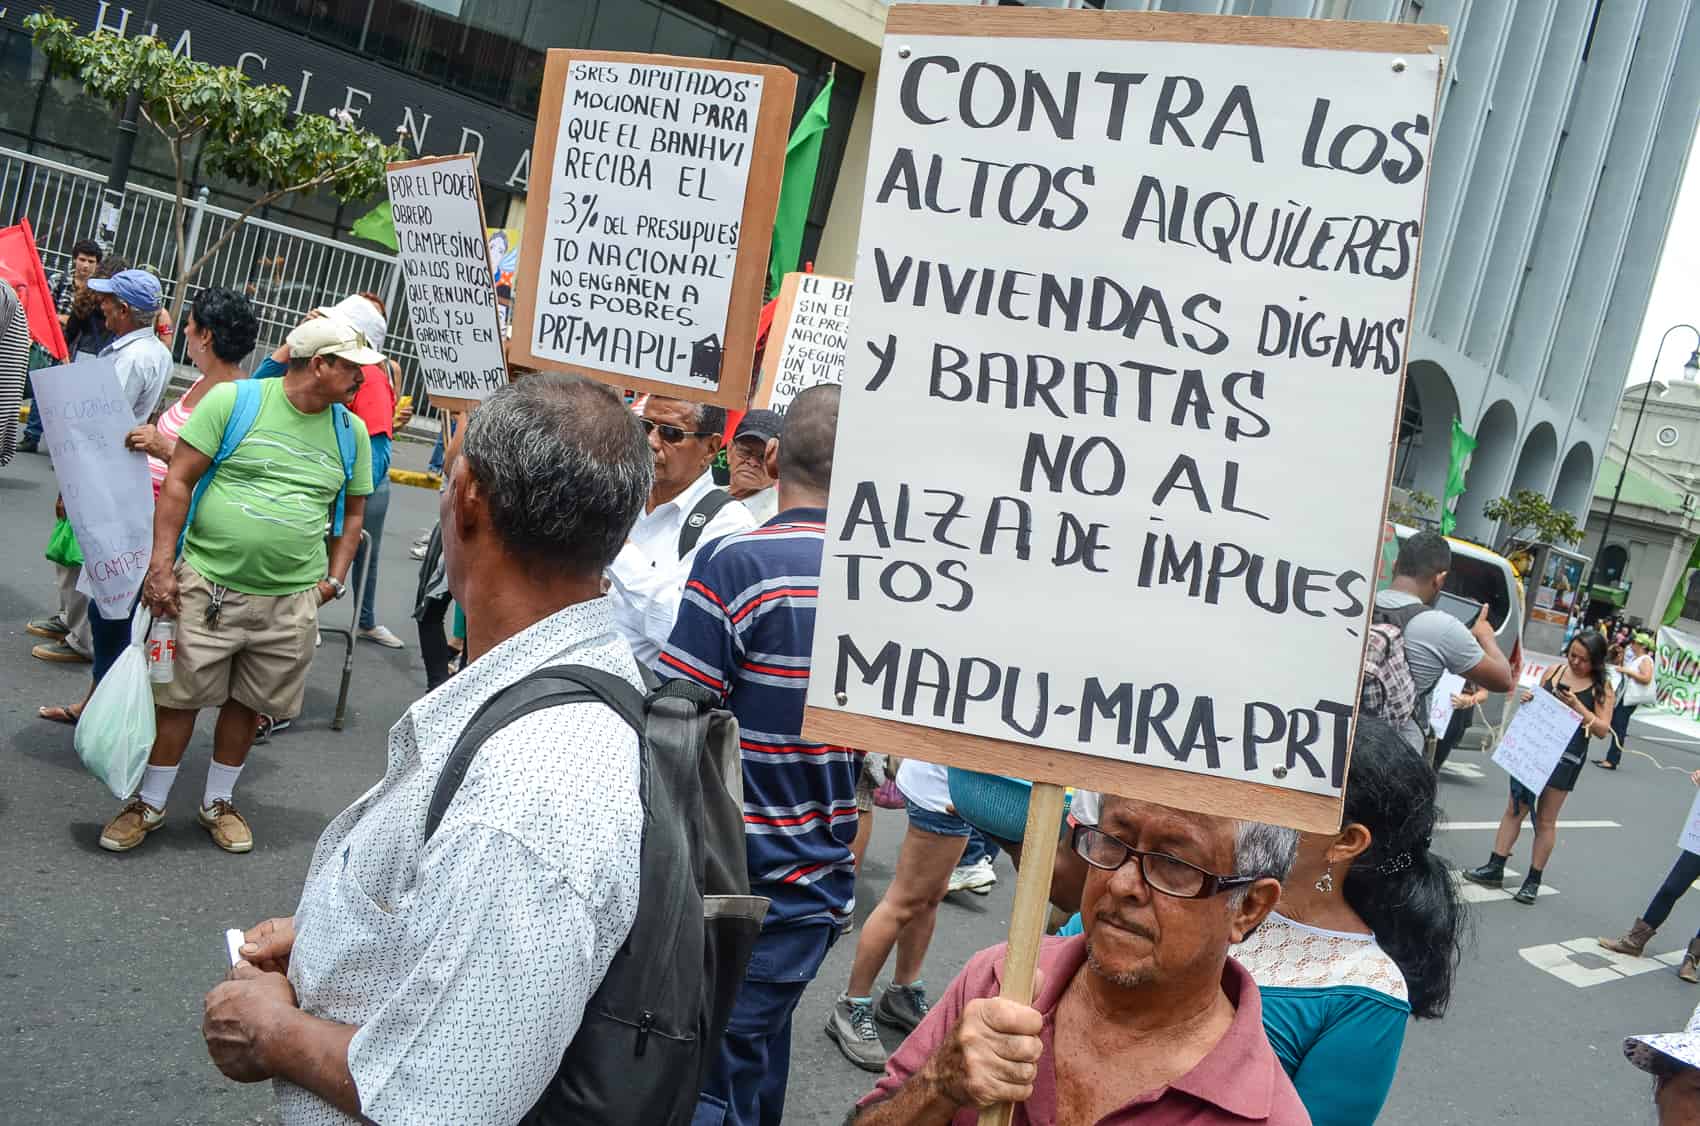 HACIENDA
POR EL PODER
OBRERO
Y CAMPESINO
NO A LOS RICOS
QUE RENUNCIE
SOLÍS Y SU
GABINETE EN
PLENO
MAPU-MRA-PRT
"SRES DIPUTADOS
MOCIONEN PARA
QUE EL BANHVI
RECIBA EL
3% DEL PRESUPUES
TO NACIONAL"
NO ENGAÑEN A
LOS POBRES.
PRT-MAPU-
SIN EL
DEL PRES
NACION
Y SEGUIR
UN VIL E
DEL
CON
CONTRA LOS
ALTOS ALQUILERES
VIVIENDAS DIGNAS
Y BARATAS
NO AL
ALZA DE IMPUES
TOS
MAPU-MRA-PRT